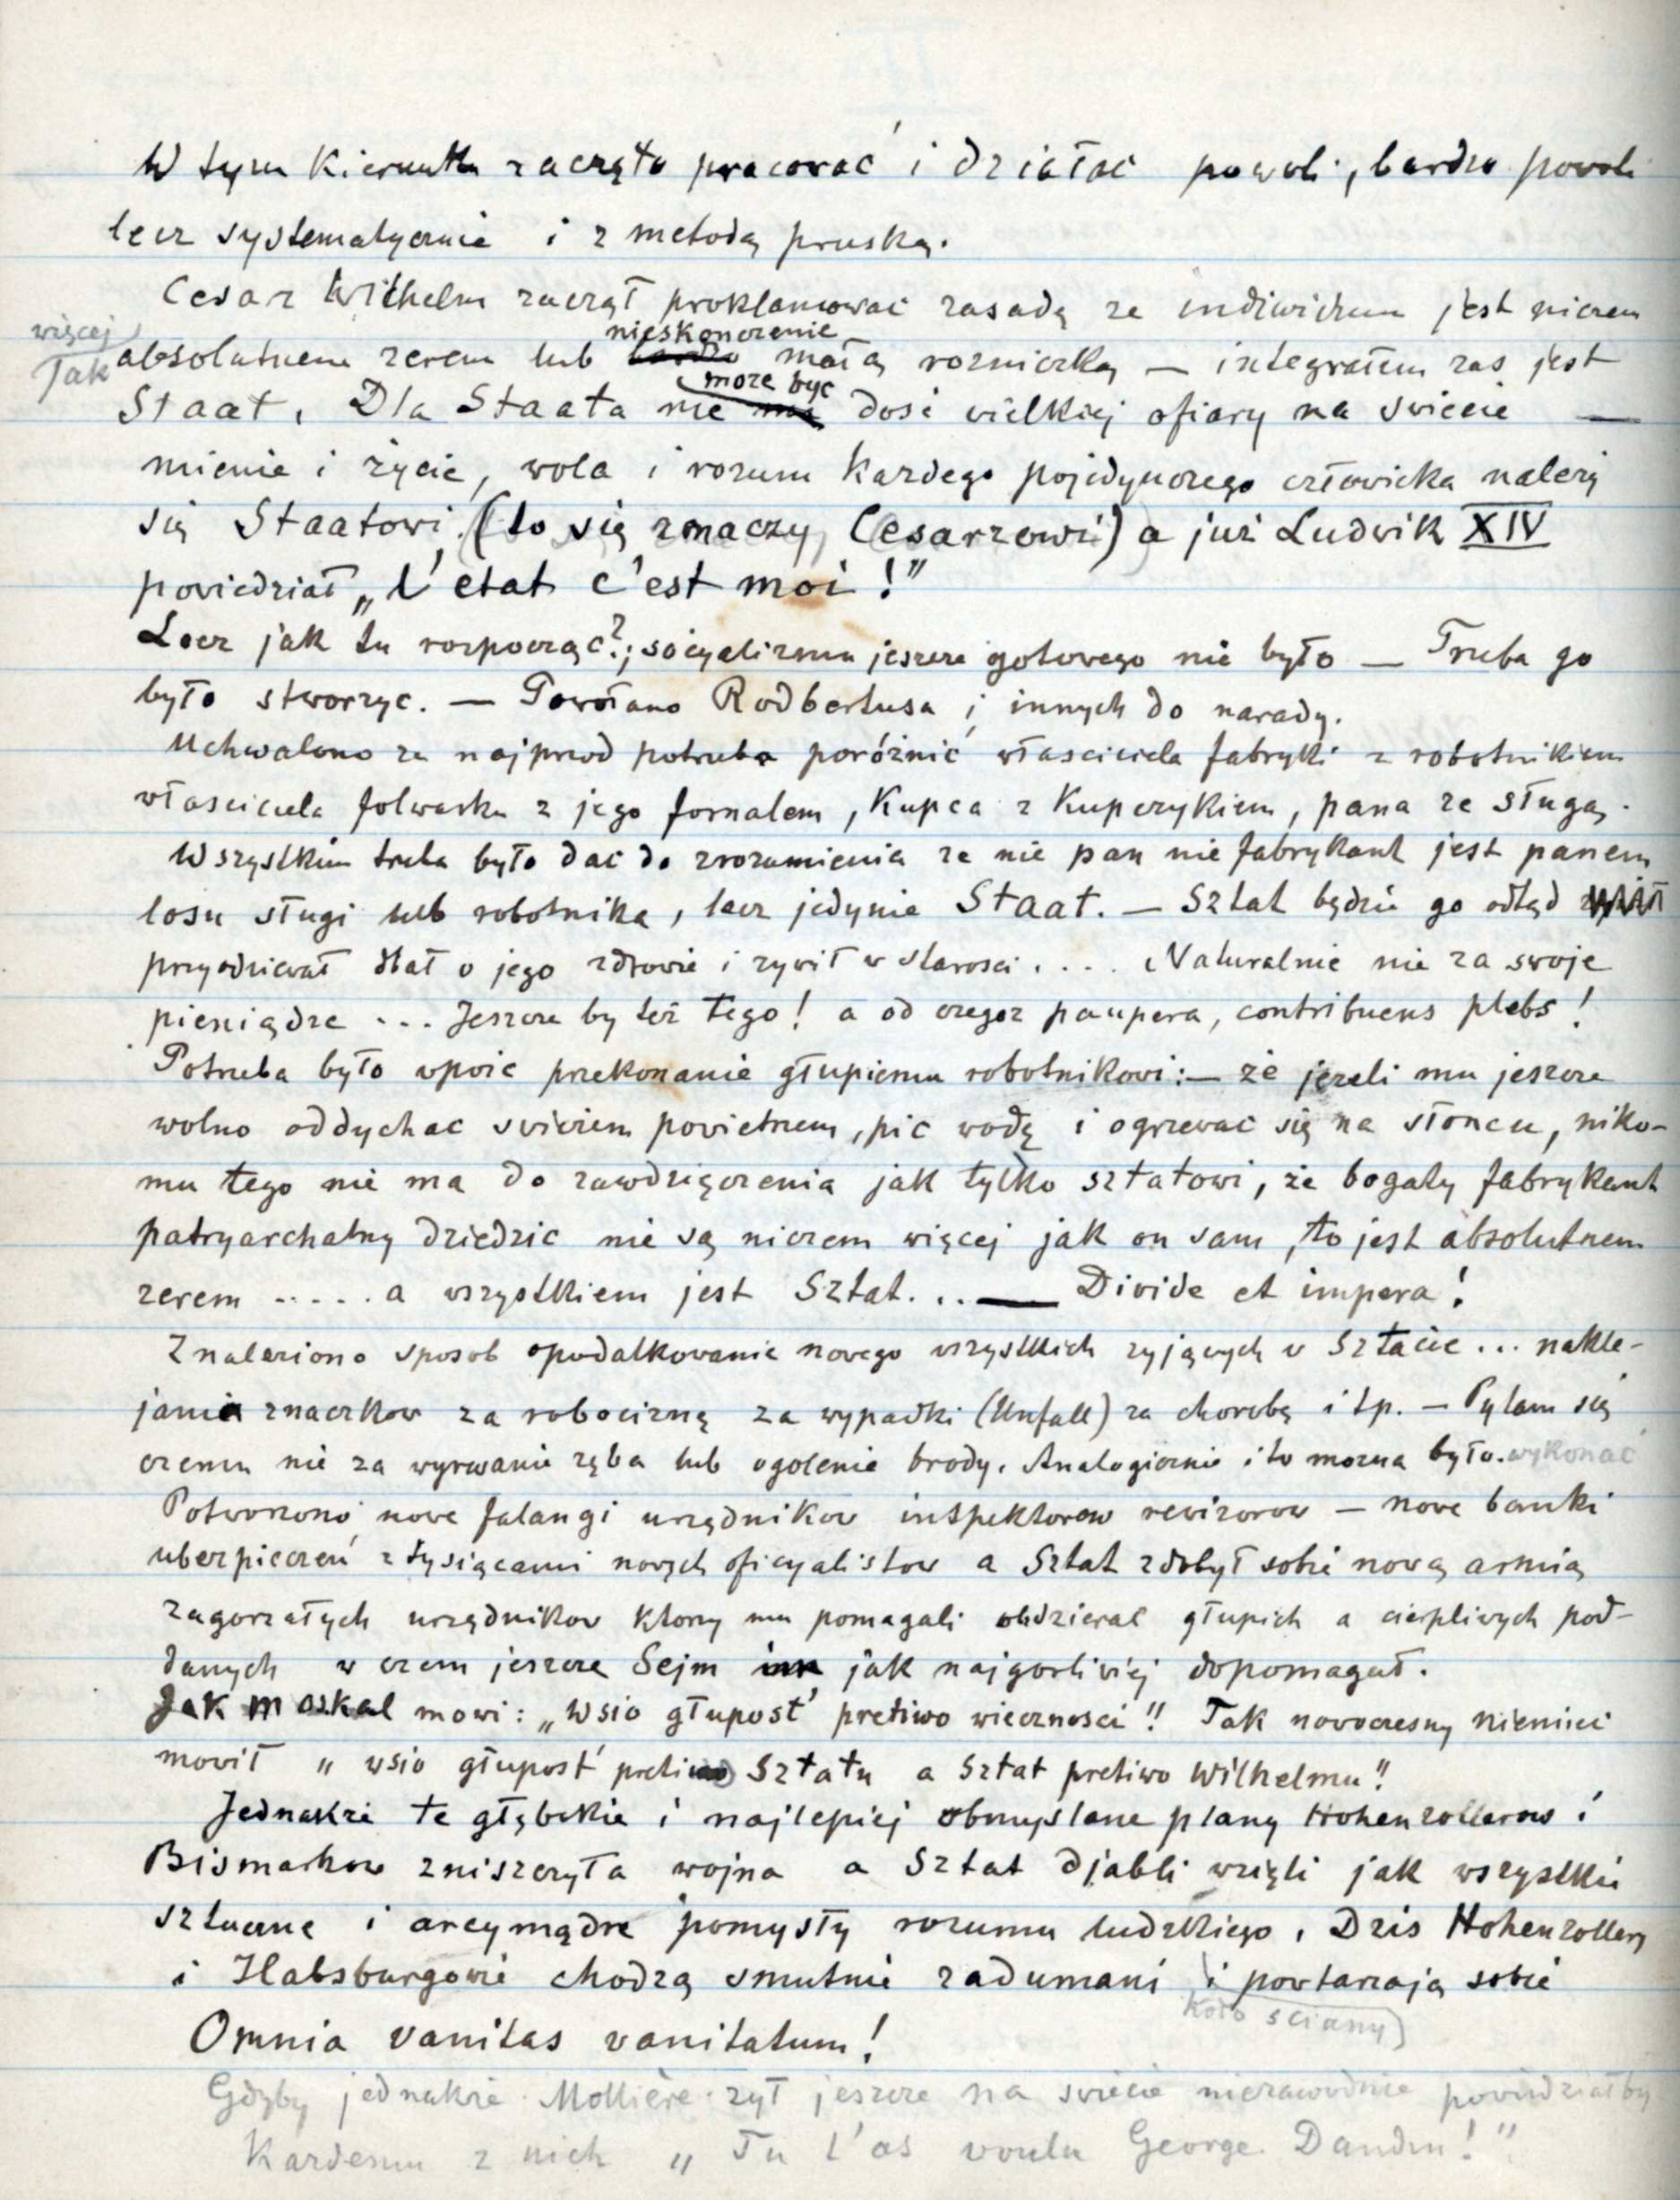 W tym kierunku zaczęto pracować i działać powoli, bardzo powoli
lecz systematycznie i z metodą pruską.
Cesar Wilhelm zaczął proklamować zasadę ze indiwiduum jest niczem
więcej
Tak
nieskonczenie
absolutnem zerem lub bardzo małą rozniczką — integrałem zas jest
moze byc
Staat. Dla Staata nie ma dość wielkiej ofiary na swiecie —
mienie i życie, wola i rozum kazdego pojedynczego człowieka nalezą
się Staatowi. (to się znaczy, Cesarzowi) a już Ludwik XIV
powiedział „l'etat c'est moi!"
Lecz jak tu rozpocząć?; socyalizmu jeszcze gotowego nie było — Trzeba go
było stworzyc. — Powołano Rodbertusa i innych do narady.
Uchwalono ze najprzod potrzeba poróżnić własciciela fabryki z robotnikiem
własciciela folwarku z jego fornalem, kupca z kupczykiem, pana ze sługą.
Wszystkim trzeba było dac do zrozumienia ze nie pan nie fabrykant jest panem
losu sługi lub robotnika, lecz jedynie Staat. — Sztat będzie go odtąd
przyodziewał dbał o jego zdrowie i zywił w starosci.... Naturalnie nie za swoje
pieniądze ... Jeszcze by też tego! a od czegoz paupera, contribuens plebs!
Potrzeba było wpoic przekonanie głupiemu robotnikowi:— że jezeli mu jeszcze
wolno oddychac swiezem powietrzem, pic wodę i ogrzewac się na słoncu, niko-
mu tego nie ma do zawdzięczenia jak tylko sztatowi, że bogaty fabrykant
patryarchatny dziedzic nie są niczem więcej jak on sam, to jest absolutnem
zerem ..... a wszystkiem jest Sztat... — Divide et impera!
Znaleziono sposob opodatkowanie nowego wszystkich zyjących w Sztacie ... nakle-
jania znaczkow za robociznę za wypadki (Unfall) za chorobę i tp. — Pytam się
czemu nie za wyrwanie zęba lub ogolenie brody. Analogicznie i to mozna było. wykonać
Potworzono nowe falangi urzędnikow inspektorow rewizorow — nowe banki
ubezpieczeń z tysiącami nowych oficyalistow a Sztat zdobył sobie nową armią
zagorzałych urzędnikow ktorzy mu pomagali obdzierać głupich a cierpliwych pod-
danych w czem jeszcze Sejm im jak najgorliwiej dopomagał.
Jak moskal mowi: „Wsio głupost' pretiwo wiecznosci"! Tak nowoczesny niemiec
mowił „wsio głupost' pretiwo Sztatu a Sztat pretiwo Wilhelmu"!
Jednakże te głębokie i najlepiej obmyslane plany Hohenzollernow i
Bismarkow zniszczyła wojna a Sztat djabli wzięli jak wszystkie
sztuczne i arcymądre pomysły rozumu ludzkiego. Dzis Hohenzollerny
i Habsburgowie chodzą smutnie zadumani i powtarzają sobie
koło sciany
Omnia vanitas vanitatum!
Gdyby jednakże Mollière zył jeszcze na swiecie niezawodnie powiedziałby
Kazdemu z nich „Tu l'as voulu George Dandin!"